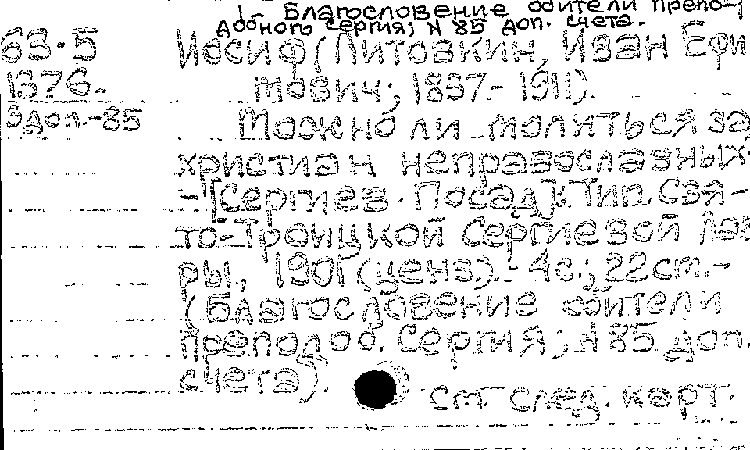 1. Благословение обители препо-
добного Сергия; N 85 доп. счета.
63.5 Иосиф (Литовкин, Иван Ефи
1376. мович; 1837-1911).
Здоп.-85 Можно ли молиться за
христиан неправославных.
- [Сергиев Посад]: Тип. Свя-
то-Троицкой Сергиевой Лав
ры, 1901 (ценз). - 4с.; 22см. -
(Благословение обители
преподоб. Сергия; N 85 доп.
счета).
см. след. карт.